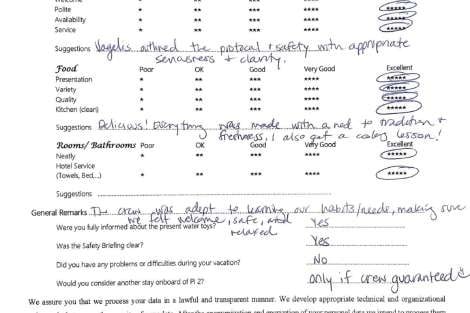 Welcome * ** *** **** *****
Polite * ** *** **** *****
Availability * ** *** **** *****
Service * ** *** **** *****
Suggestions Vagelis outlined the protocol & safety with appropriate
seriousness & clarity.
Food Poor OK Good Very Good Excellent
Presentation * ** *** **** *****
Variety * ** *** **** *****
Quality * ** *** **** *****
Kitchen (clean) * ** *** **** *****
Suggestions Delicious! Everything was made with a nod to tradition &
freshness, I also got a cooking lesson!
Rooms/ Bathrooms Poor OK Good Very Good Excellent
Neatly * ** *** **** *****
Hotel Service
(Towels, Bed,...) * ** *** **** *****
Suggestions
General Remarks The crew was adept to learning our habits/needs, making sure
we felt welcome, safe, and
relaxed
Were you fully informed about the present water toys? Yes
Was the Safety Briefing clear? Yes
Did you have any problems or difficulties during your vacation? No
Would you consider another stay onboard of Pi 2? only if crew guaranteed ☺
We assure you that we process your data in a lawful and transparent manner. We develop appropriate technical and organizational